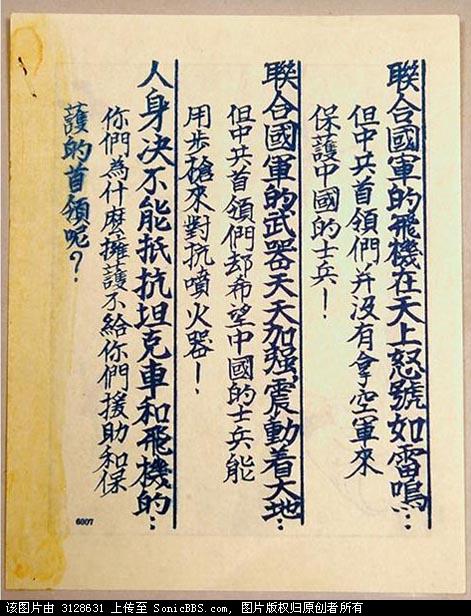 聯合國軍的飛機在天上怒號如雷鳴…
但中共首領們并没有拿空軍來
保護中國的士兵！
聯合國軍的武器天天加强，震動着大地…
但中共首領們却希望中國的士兵能
用步槍來對抗噴火器！
人身决不能抵抗坦克車和飛機的…
你們為什麽擁護不給你們援助和保
護的首領呢？
6007
该图片由 3128631 上传至 SonicBBS.com , 图片版权归原创者所有